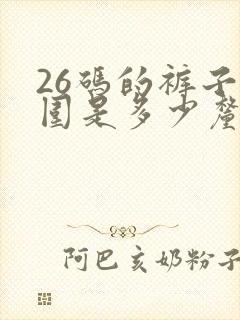 26碼的裤子
围是多少釐
阿巴亥奶粉子